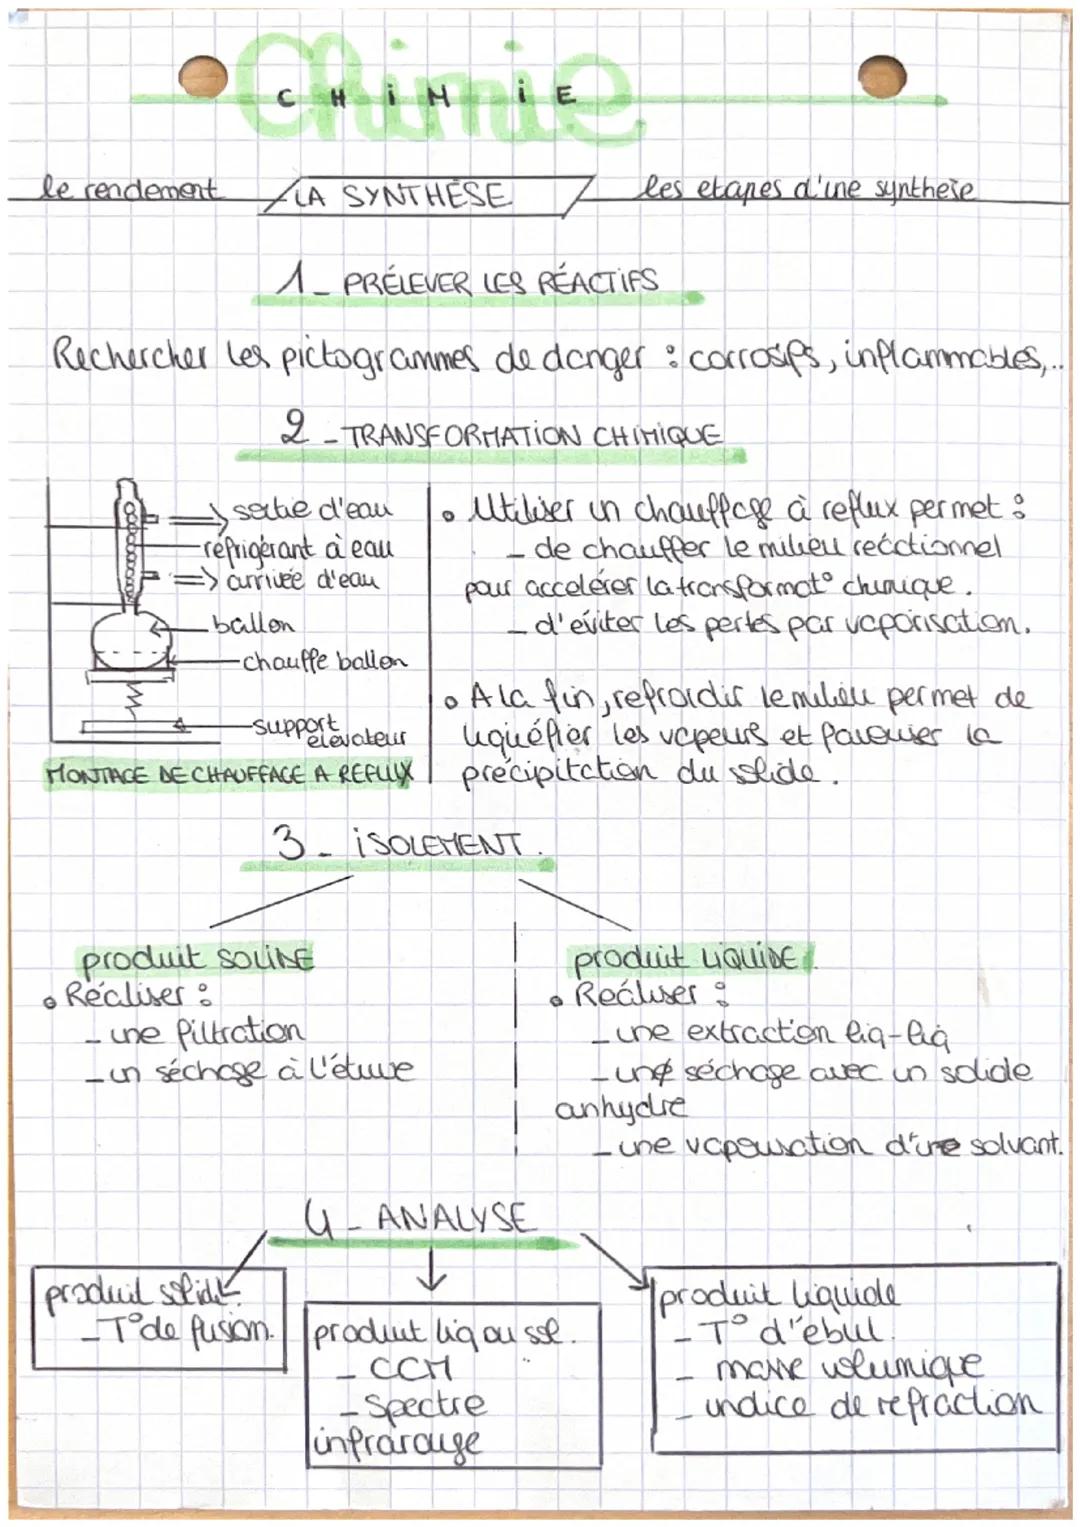 Chimie
CHiMiE
le rendement
LA SYNTHÈSE
les etapes d'une synthese
1_ PRÉLEVER LES RÉACTiFS
Rechercher les pictogrammes de danger : corrosifs, inflammables,...
2 _ TRANSFORMATiON CHIMIQUE
sortie d'eau
réfrigérant à eau
arrivée d'eau
ballon
chauffe ballon
support
élevateur
MONTAGE DE CHAUFFAGE A REFLUX
• Utiliser un chauffage à reflux permet :
_ de chauffer le milieu réactionnel
pour accelérer la transformat° chimique.
_ d'éviter les pertes par vaporisation.
• A la fin, refroidir le milieu permet de
liquéfier les vapeurs et favoriser la
précipitation du solide.
3_ iSOLEMENT.
produit SOLiDE
• Réaliser :
_ une filtration
_ un séchage à l'étuve
produit LiQUiDE.
• Réaliser :
_ une extraction liq-liq
_ un séchage avec un solide
anhydre
_ une vaporisation d'une solvant.
4_ ANALYSE
produit solide.
_ T° de fusion.
produit liq ou sol.
_ CCM
_ Spectre
infrarouge
produit liquide
_ T° d'ébul.
_ masse volumique
_ indice de refraction